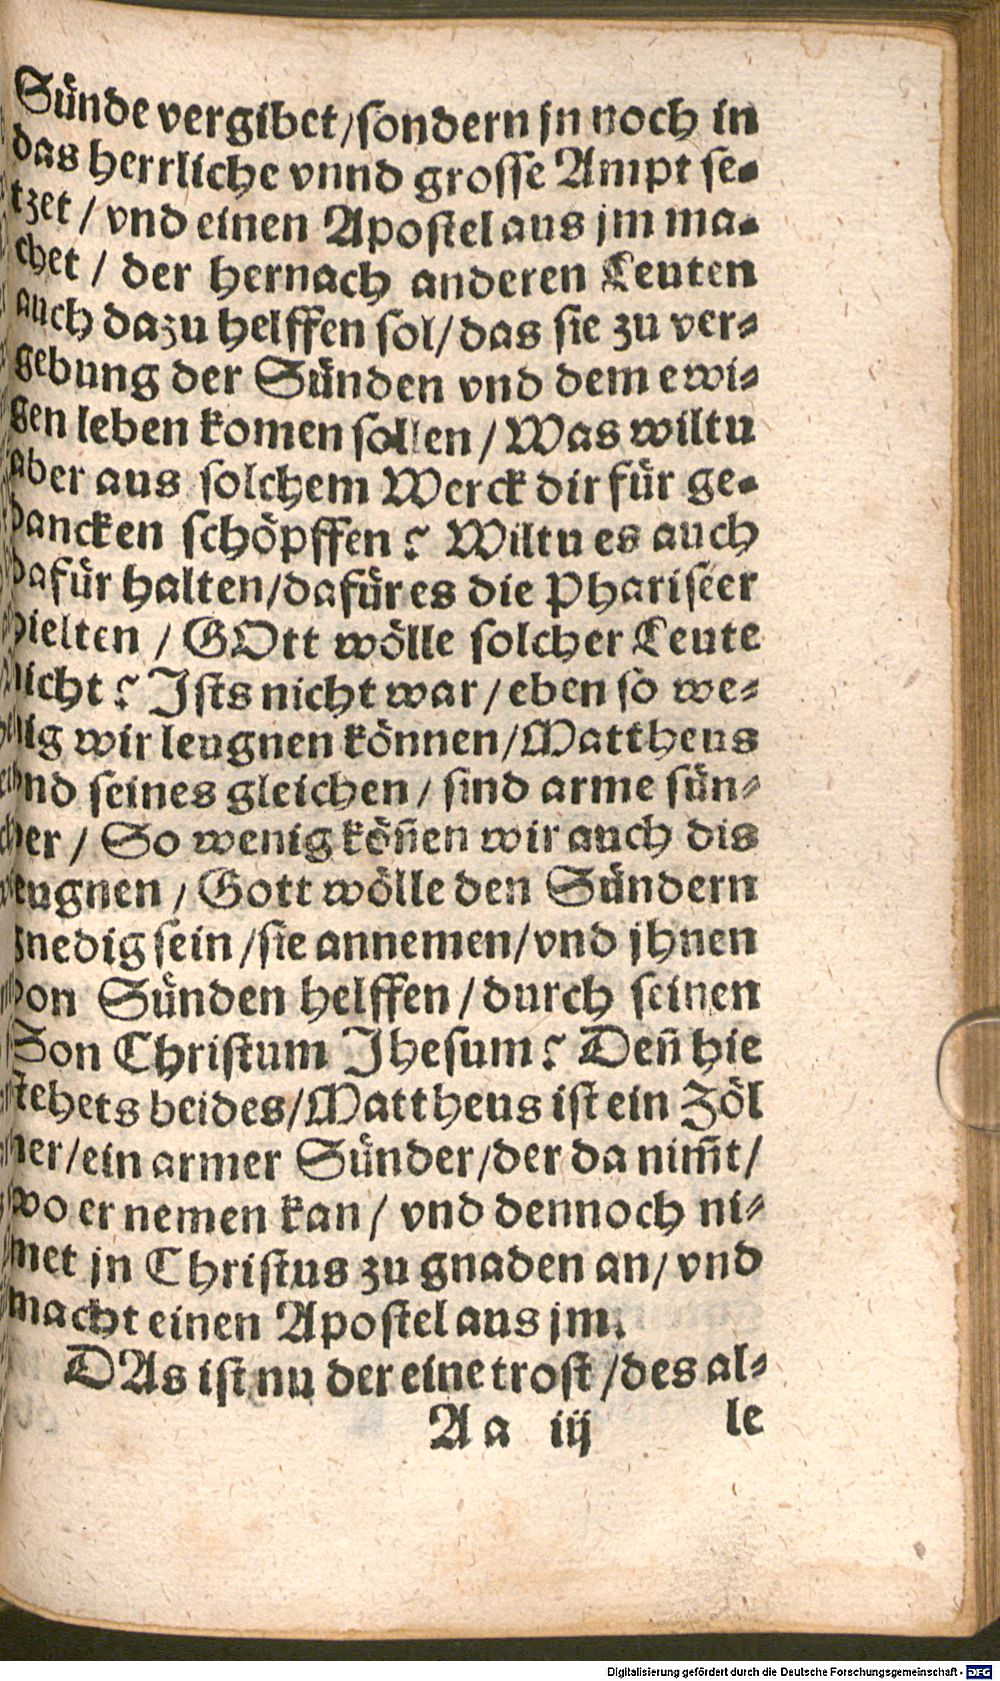 Sünde vergibet/sondern jn noch in
das herrliche vnnd grosse Ampt se-
tzet / vnd einen Apostel aus jm ma-
chet / der hernach anderen Leuten
auch dazu helffen sol/das sie zu ver-
gebung der Sünden vnd dem ewi-
gen leben komen sollen / Was wiltu
aber aus solchem Werck dir für ge-
dancken schöpffen? Wiltu es auch
dafür halten/dafür es die Phariseer
hielten / GOtt wölle solcher Leute
nicht? Ists nicht war / eben so we-
nig wir leugnen können/Mattheus
vnd seines gleichen / sind arme sün-
der / So wenig köñen wir auch dis
leugnen / Gott wölle den Sündern
gnedig sein /sie annemen/vnd jhnen
von Sünden helffen / durch seinen
Son Christum Jhesum? Deñ hie
stehets beides/Mattheus ist ein Zöl
ner/ein armer Sünder/der da nim̃t/
wo er nemen kan / vnd dennoch ni-
met jn Christus zu gnaden an/ vnd
macht einen Apostel aus jm.
DAs ist nu der eine trost /des al-
A a iij le
Digitalisierung gefördert durch die Deutsche Forschungsgemeinschaft - DFG